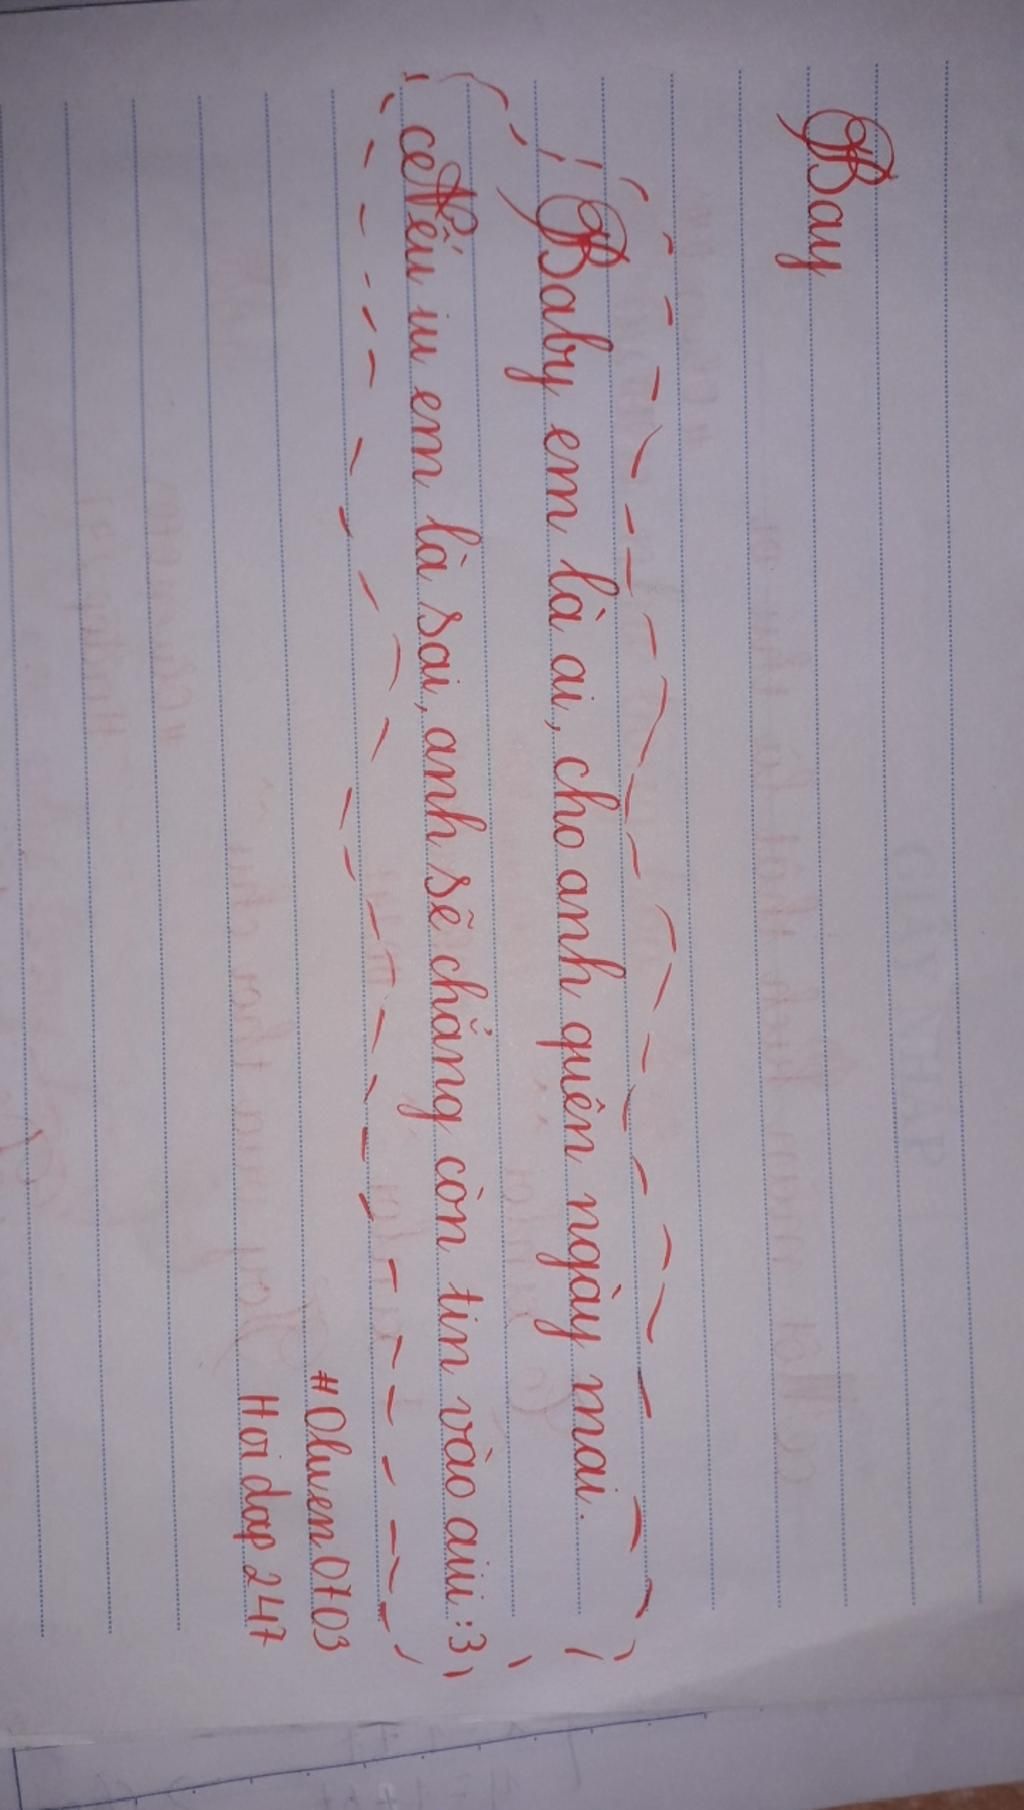 Bay
Baby em là ai, cho anh quên ngày mai.
Nếu iu em là sai, anh sẽ chẳng còn tin vào aiii :3
#Olwen0703
Hoidap247